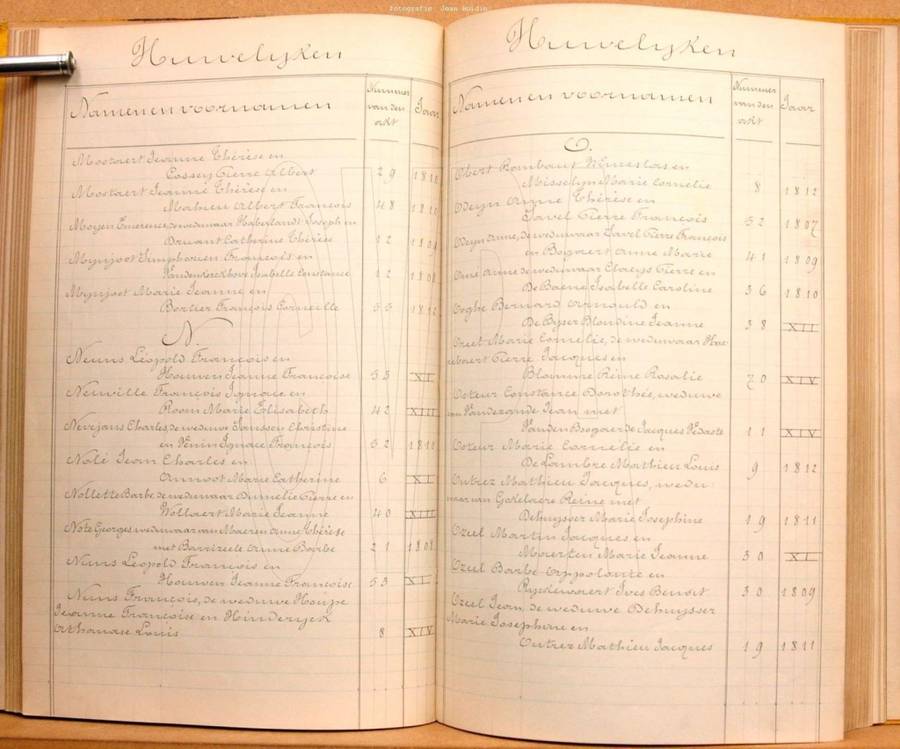 Fotografie: Jean Guidin
Huwelijken
Namen en voornamen
Nummer
van den
akt
Jaar
Mostaert Jeanne Thérèse en
Cossey Pierre Albert 29 1812
Mostaert Jeanne Thérèse en
Mahieu Albert François 48 1810
Moyen Emerence, de weduwaar Haberlandt Joseph en
Druant Catherine Thérèse 12 1809
Mynjoot Simphorien François en
Vandenkerckhove Isabelle Constance 12 1808
Mynjoet Marie Jeanne en
Bortier François Corneille 55 1812
N.
Neuns Léopold François en
Houwen Jeanne Françoise 53 XI
Neuville François Ignace en
Room Marie Elisabeth 42 XIII
Nevejans Charles, de weduwe Janssen Christine
en Venin Ignace François 52 1810
Nolé Jean Charles en
Annoot Marie Catherine 6 XI
Nollette Barbe de weduwaar Pierre en
Wollaert Marie Jeanne 40 XIII
Note Georges weduwaar van Maeren Anne Thérèse
met Barrizeele Anne Barbe 21 1808
Neuns Léopold François en
Houwen Jeanne Françoise 53 XI
Neuns François, de weduwe Houpe
Jeanne Françoise en Hinderyck
Athanase Louis 8 XIV
Huwelijken
Namen en voornamen
Nummer
van den
akt
Jaar
O.
Obert Rombaut Winnestas en
Misselyn Marie Cornélie 8 1812
Odeyn Anne Thérèse en
Javel Pierre François 52 1807
Odeyn Anne, de weduwaar Javel Pierre François
en Bogaert Anne Marie 41 1809
Ome Anne de weduwaar Claeys Pierre en
De Baene Isabelle Caroline 36 1810
Ooghe Bernard Arnould en
De Byser Blondine Jeanne 38 XII
Oreel Marie Cornélie, de weduwaar
Pierre Jacques en
Blomme Reine Rosalie 70 XIV
Osteur Constance Dorothée, weduwe
van Vandezande Jean met
Vanden Bogaerde Jacques Vedaste 11 XIV
Osteur Marie Cornélie en
De Lambre Mathieu Louis 9 1812
Outrez Mathieu Jacques, wedu-
naar van Gokelaere Reine met
Dehuysser Marie Josephine 19 1811
Ozeel Martin Jacques en
Maerten Marie Jeanne 30 XI
Ozeel Barbe Appolonie en
Ryckewaert Ives Benoit 30 1809
Ozeel Jean, de weduwe Dehuysser
Marie Josephine en
Outrez Mathieu Jacques 19 1811